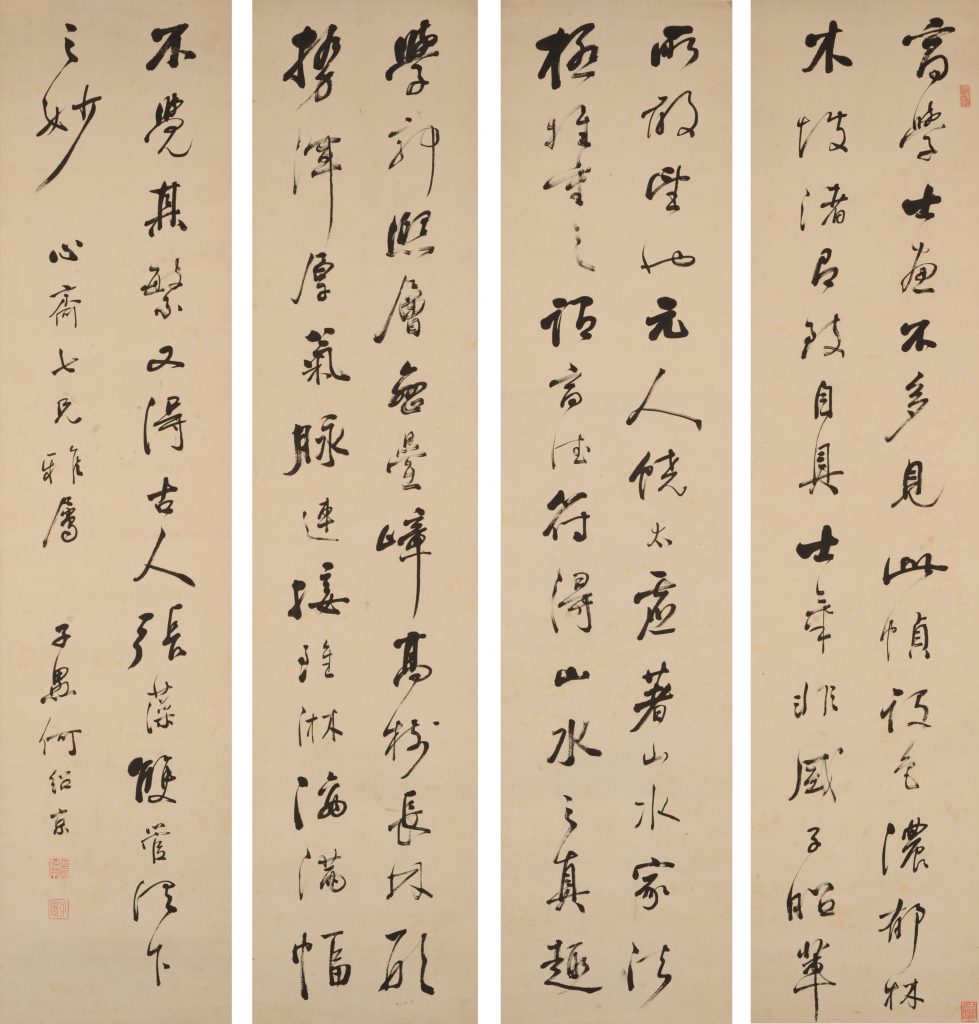 高學士畫不多見此幀設色濃郁林
木坡渚致自具士氣非盛子昭輩
所敢望也元人饒太虛著山水家法
極推重之高德符得山水之真趣
學郭熙層巒疊嶂高樹長林形
勢渾厚氣脉連接雖淋漓滿幅
不覺其繁又得古人張藻雙管下
之妙 心齋七兄雅屬 子愚何紹京